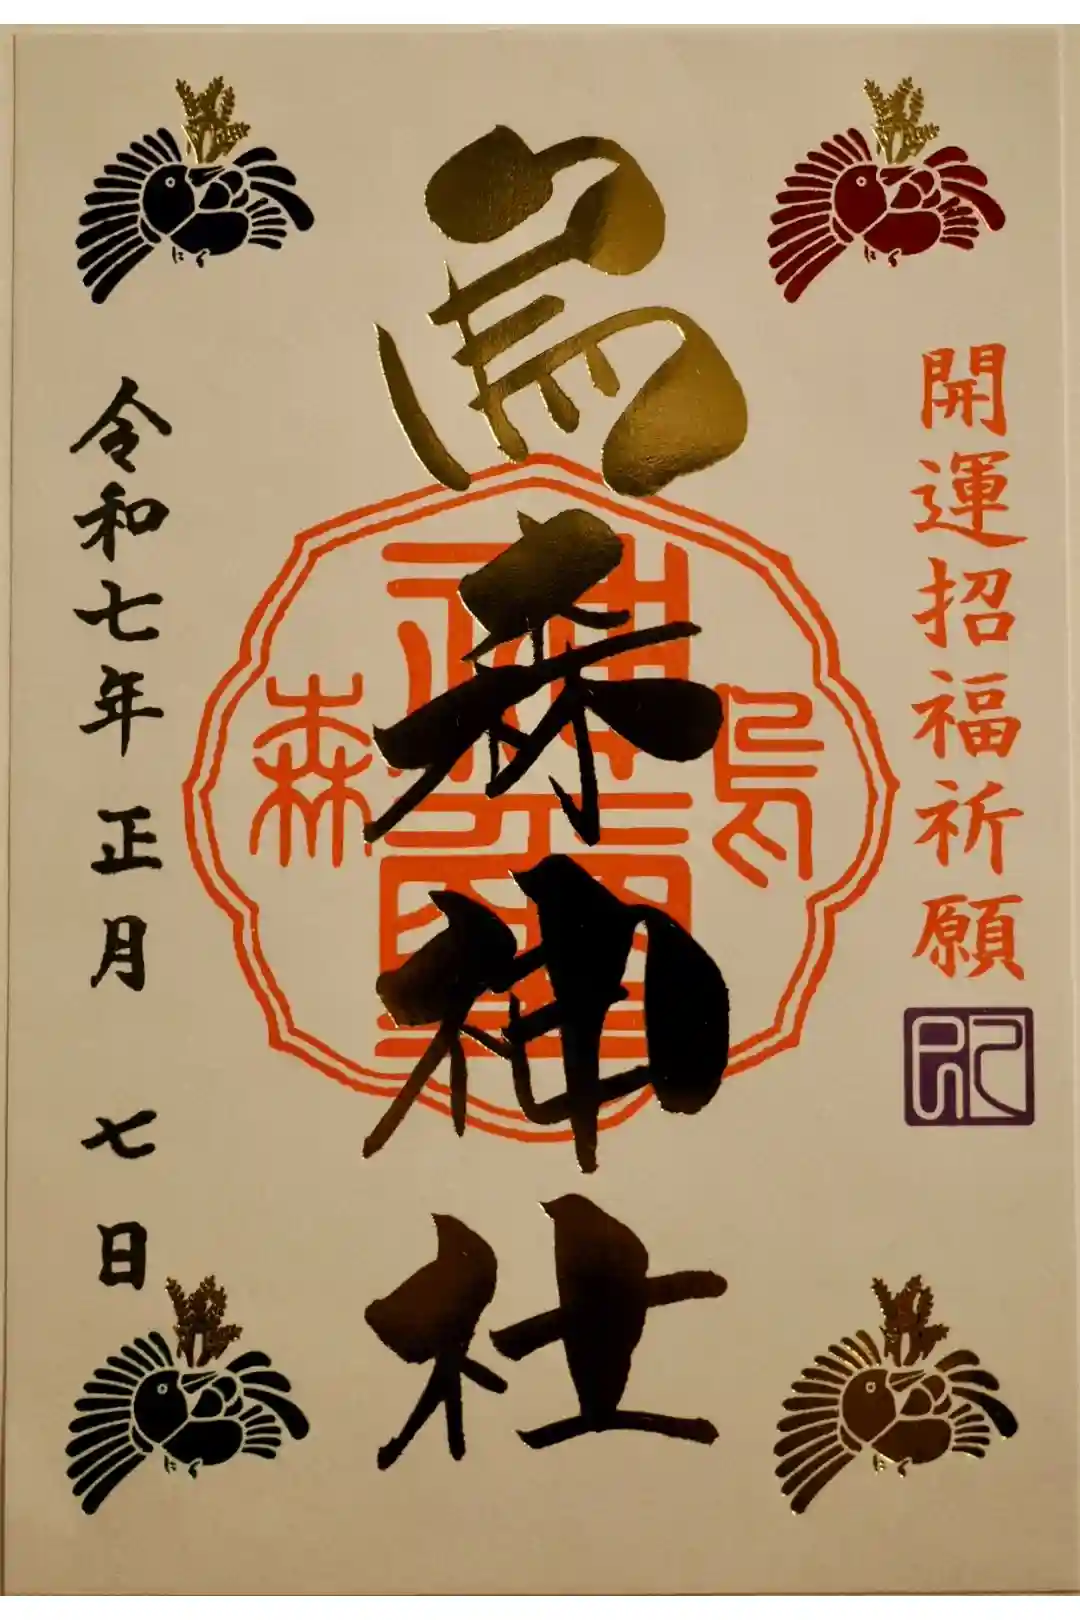 開運招福祈願
烏森神社
烏
神璽
森
令和七年 正月 七日